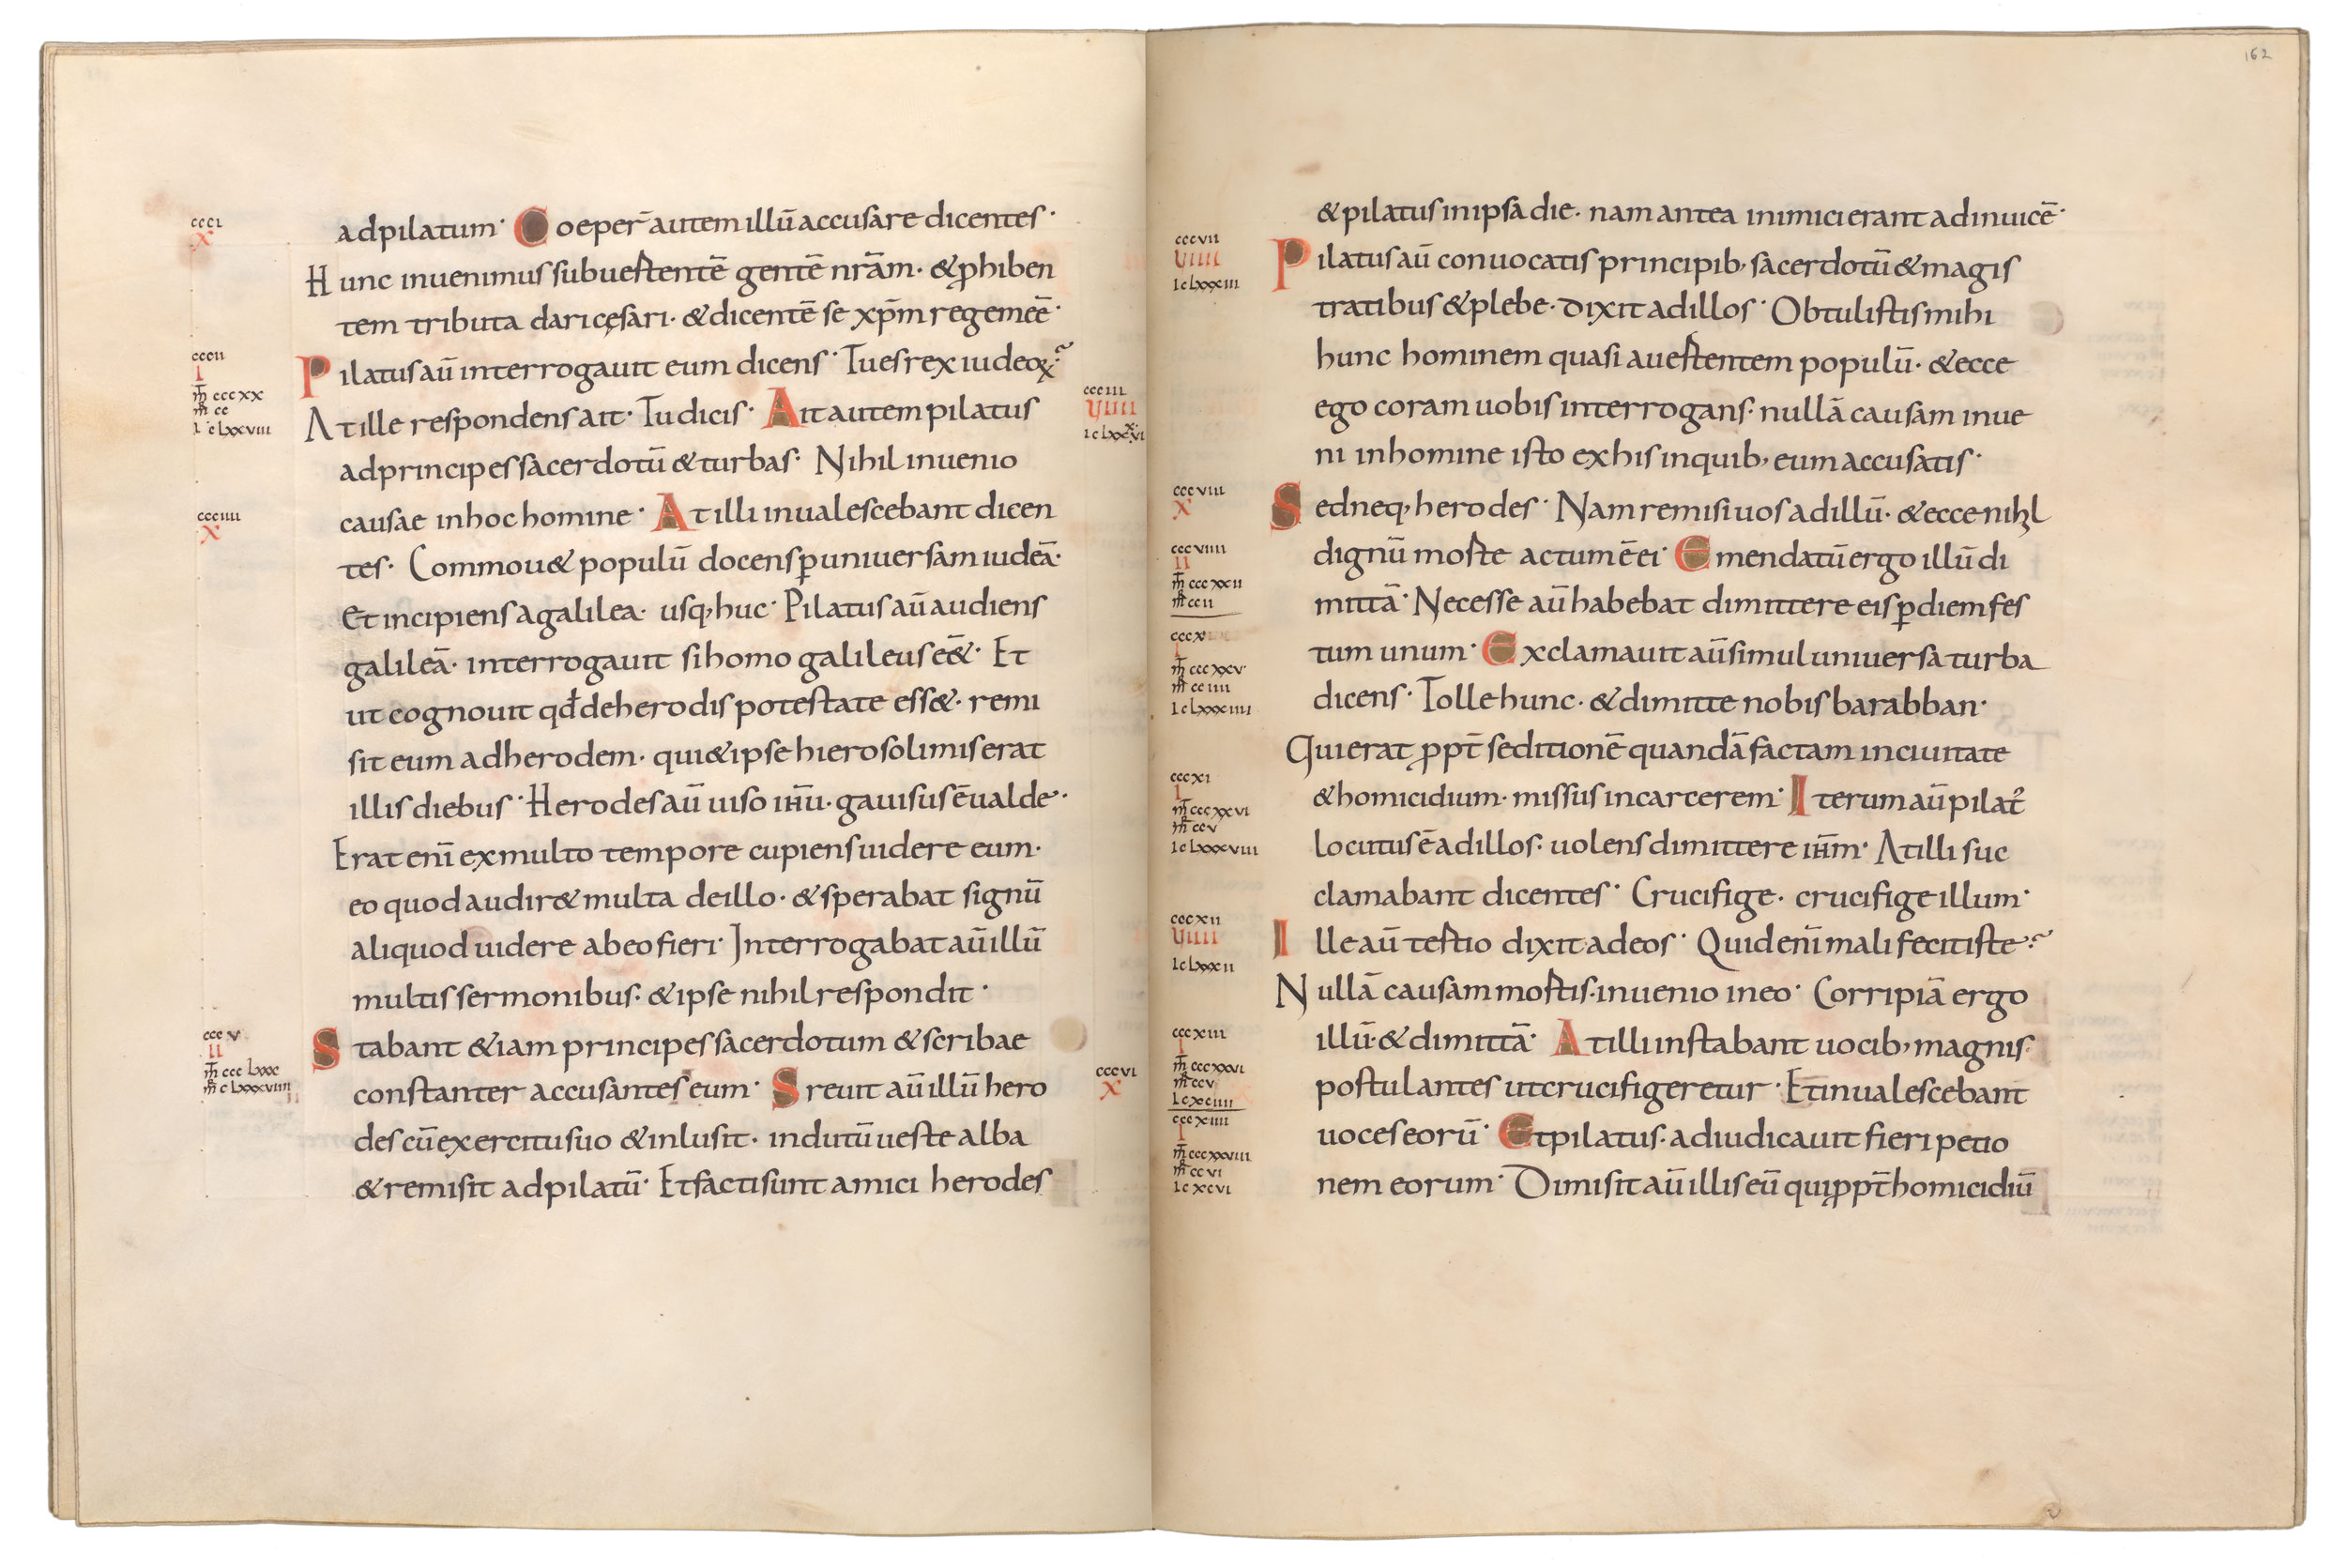 162
ccci
x
adpilatum· Coeper̄ autem illū accusare dicentes·
Hunc inuenimus subuertentē gentē nr̄am· & ꝓhiben
tem tributa dari cęsari· & dicentē se xp̄m regem eē·
cccii
i
m̄ cccxx
mr̄ cc
i clxxviii
Pilatus aū interrogauit eum dicens· Tu es rex iudeoꝝ?
At ille respondens ait· Tu dicis· Ait autem pilatus
ccciii
viiii
adprincipes sacerdotū & turbas· Nihil inuenio
causae inhoc homine· At illi inualescebant dicen
ccciiii
x
tes· Commou& populū docens ꝑ uniuersam iudeā·
Et incipiens agalilea· usq; huc· Pilatus aū audiens
galileā· interrogauit si homo galileus eē&· Et
ut cognouit qd̄ deherodis potestate ess&· remi
sit eum adherodem· qui & ipse hierosolimis erat
illis diebus· Herodes aū uiso ih̄u· gauisus ē ualde·
Erat enī exmulto tempore cupiens uidere eum·
eo quod audir& multa deillo· & sperabat signū
aliquod uidere abeo fieri· Interrogabat aū illū
multis sermonibus· & ipse nihil respondit·
ccc v
ii
m̄ ccc lxxx
mr̄ c lxxxviiii
Stabant & iam principes sacerdotum & scribae
constanter accusantes eum· Sreuit aū illū hero
cccvi
x
des cū exercitu suo & inlusit· indutū ueste alba
& remisit adpilatū· Et facti sunt amici herodes
& pilatus inipsa die· nam antea inimici erant adinuicē·
cccvii
viiii
i clxxxiii
Pilatus aū conuocatis principib; sacerdotū & magis
tratibus & plebe· dixit adillos· Obtulistis mihi
hunc hominem quasi auertentem populū· & ecce
ego coram uobis interrogans· nullā causam inue
ni inhomine isto exhis inquib; eum accusatis·
cccviii
x
Sed neq; herodes· Nam remisi uos adillū· & ecce nihl
cccviiii
ii
m̄ cccxxii
mr̄ ccii
dignū morte actum ē ei· Emendatū ergo illū di
mittā· Necesse aū habebat dimittere eis ꝑ diem fes
cccx
i
m̄ cccxxv
mr̄ cciiii
i clxxxiiii
tum unum· Exclamauit aū simul uniuersa turba
dicens· Tolle hunc· & dimitte nobis barabban·
Qui erat ꝓpt̄ seditionē quandā factam inciuitate
cccxi
i
m̄ cccxxvi
mr̄ ccv
i clxxxviii
& homicidium· missus incarcerem· Iterum aū pilat᷒
locutus ē adillos· uolens dimittere ih̄m· At illi suc
clamabant dicentes· Crucifige· crucifige illum·
cccxii
viiii
i clxxxii
Ille aū tertio dixit adeos· Quid enī mali fecit iste?
Nullā causam mortis· inuenio ineo· Corripiā ergo
cccxiii
i
m̄ cccxxvi
mr̄ ccv
i cxciiii
illū· & dimittā· At illi instabant uocib; magnis·
postulantes ut crucifigeretur· Et inualescebant
cccxiiii
i
m̄ cccxxviii
mr̄ ccvi
i cxcvi
uoces eorū· Et pilatus· adiudicauit fieri petitio
nem eorum· Dimisit aū illis eū qui ꝓpt̄ homicidiū